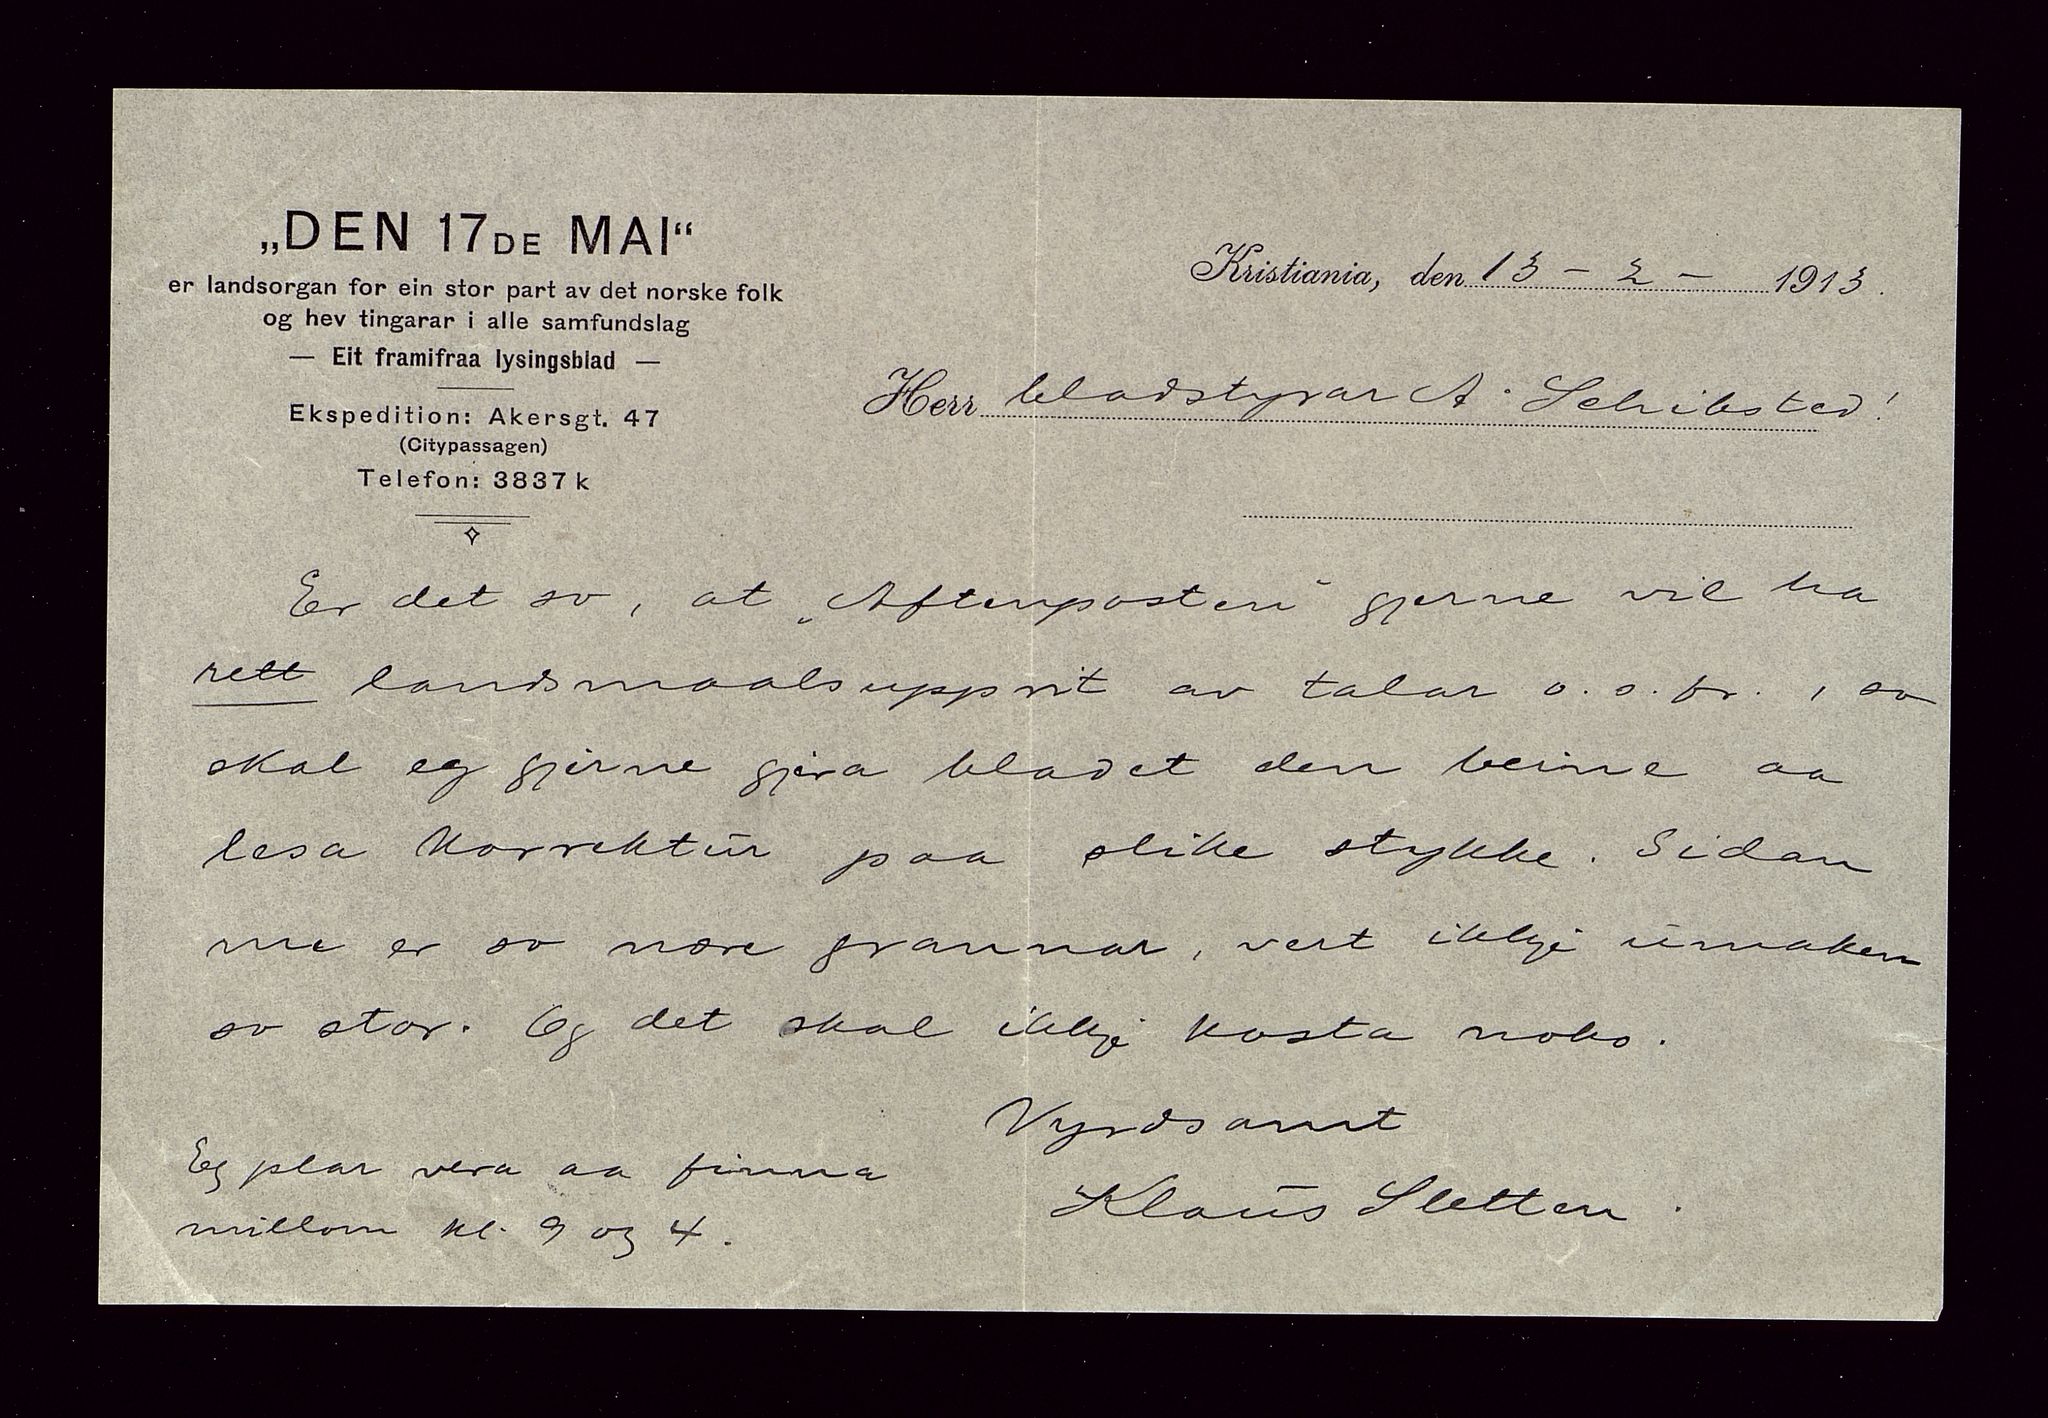 „DEN 17DE MAI“
er landsorgan for ein stor part av det norske folk
og hev tingarar i alle samfundslag
— Eit framifraa lysingsblad —
Ekspedition: Akersgt. 47
(Citypassagen)
Telefon: 3837 k
Kristiania, den 13 - 2 - 1913.
Herr bladstyrar A. Schibsted!
Er det so, at „Aftenposten“ gjerne vil ha
rett landsmaalsupprit av talar o. s. fr., so
skal eg gjerne gjera bladet den beine aa
lesa korrektur paa slike stykke. Sidan
me er so nære grannar, vert ikkje umaken
so stor. Og det skal ikkje kosta noko.
Vyrdsamt
Klaus Sletten.
Eg plar vera aa finna
millom kl. 9 og 4.